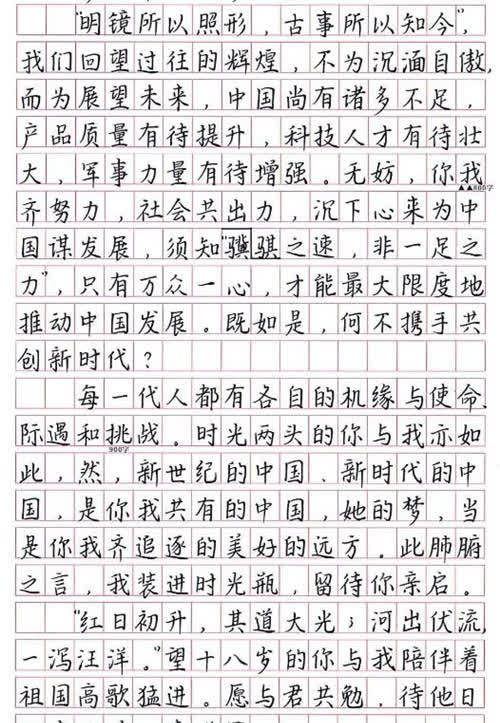 "明镜所以照形，古事所以知今"，
我们回望过往的辉煌，不为沉湎自傲，
而为展望未来，中国尚有诸多不足，
产品质量有待提升，科技人才有待壮
大，军事力量有待增强。无妨，你我
▲▲800字
齐努力，社会共出力，沉下心来为中
国谋发展，须知"骥骐之速，非一足之
力"，只有万众一心，才能最大限度地
推动中国发展。既如是，何不携手共
创新时代？
每一代人都有各自的机缘与使命、
际遇和挑战。时光两头的你与我亦如
900字
此，然，新世纪的中国、新时代的中
国，是你我共有的中国，她的梦，当
是你我齐追逐的美好的远方。此肺腑
之言，我装进时光瓶，留待你亲启。
"红日初升，其道大光；河出伏流，
一泻汪洋。"望十八岁的你与我陪伴着
祖国高歌猛进。愿与君共勉，待他日